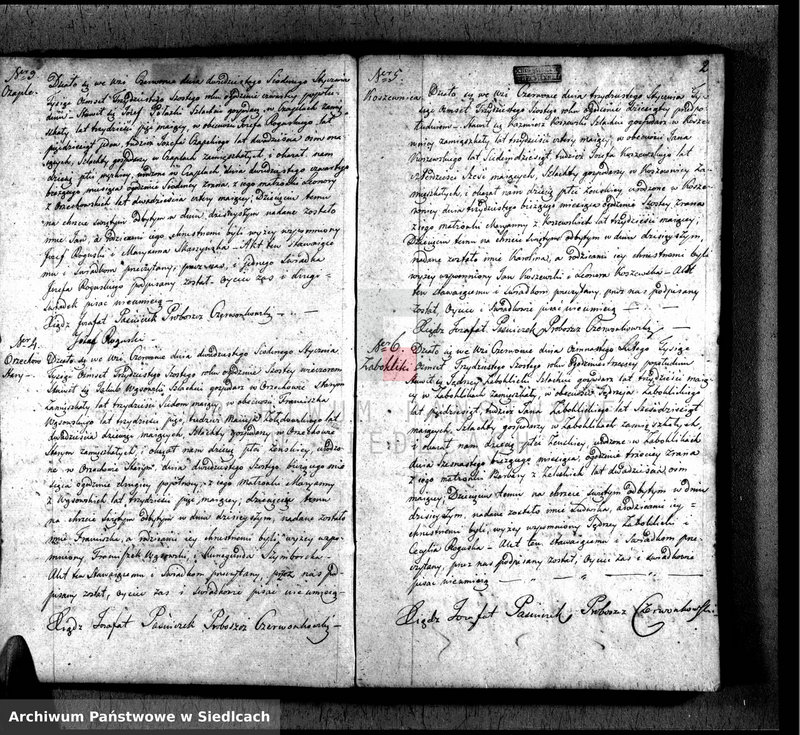 Nro 3
Czaple
Działo się we wsi Czerwonce dnia dwudziestego Siódmego Stycznia
Tysiąc Ośmset Trzydziestego Szóstego roku o godzinie czwartey popołu-
dniu – Stawił się Józef Szlachcic gospodarz w Czaplach zamie-
szkały lat trzydzieści pięć maiący, w obecności Józefa Rogoskiego lat
pięćdziesiąt jeden, tudzież Józefa Czapskiego lat dwadzieścia ośm ma-
iących, Szlachty gospodarzy w Czaplach zamieszkałych i okazał nam
dziecię płci męzkiey, urodzone w Czaplach dnia dwudziestego czwartego
bieżącego miesiąca o godzinie Siódmey zrana, z jego małżonki Eleonory
z Orzechowskich lat dwadzieścia cztery maiącey. Dziecięciu temu
na chrzcie świętym odbytym w dniu dzisieyszym nadane zostało
imie Jan, a rodzicami iego chrzestnemi byli wyżey wspomniony
Józef Roguski i Maryanna – Akt ten stawaiące-
mu i świadkom przeczytany, przez nas, i jednego świadka
Józefa Rogóskiego podpisany został. Oyciec zaś i drugi
świadek pisać nieumieią –
Xiądz Jozafat Paśniczek Proboszcz Czerwonkowski
Józef Roguski
Nro 4.
Orzechów
Stary
Działo się we wsi Czerwonce dnia dwudziestego Siódmego Stycznia
Tysiąc Ośmset Trzydziestego Szóstego roku o godzinie Szóstey wieczorem
Stawił się Jakub Wąsowski Szlachcic gospodarz w Orzechowie Starym
Zamieszkały lat trzydzieści Siedm maiący, w obecności Franciszka
Wąsowskiego lat trzydzieści pięć, tudzież lat
dwadzieścia dziewięć maiących, Szlachty gospodarzy w Orzechowie
Starym zamieszkałych, i okazał nam dziecię płci żeńskiey, urodzo-
ne w Orzechowie Starym dnia dwudziestego Szóstego bieżącego mie-
siąca o godzinie drugiey popółnocy, z jego małżonki Maryanny
z Wąsowskich lat trzydzieści pięć maiącey, dziecięciu temu
na chrzcie świętym odbytym w dniu dzisieyszym, nadane zostało
imie Franciszka, a rodzicami iey chrzestnemi byli wyżey wspo-
mniony Franciszek Wąsowski i Kunegunda
Akt ten stawaiącemu i świadkom przeczytany, przez nas pod-
pisany został, Oyciec zaś i świadkowie pisać nieumieią –
Xiądz Jozafat Paśniczek Proboszcz Czerwonkowski –
2
Nro 5.
Koszewnica
Działo się we wsi Czerwonce dnia trzydziestego Stycznia Ty-
siąc Ośmset Trzydziestego Szóstego roku o godzinie dziesiątey przed
południem – Stawił się Kazimierz Koszewski Szlachcic gospodarz w Kosze-
wnicy zamieszkały, lat trzydzieści cztery maiący, w obecności Jana
Koszewskiego lat Siedmdziesiąt, tudzież Józefa Koszewskiego lat
czterdzieści Sześć maiących, Szlachty gospodarzy w Koszewnicy za-
mieszkałych, i okazał nam dziecię płci żeńskiey urodzone w Kosze-
wnicy dnia trzydziestego bieżącego miesiąca o godzinie Szóstey zrana
z jego małżonki Maryanny z Koszewskich lat trzydzieści maiącey,
Dziecięciu temu na chrzcie świętym odbytym w dniu dzisieyszym,
nadane zostało imie Karolina, a rodzicami iey chrzestnemi byli
wyżey wspomniony Jan Koszewski i Eleonora Koszewska – Akt
ten stawaiącemu i świadkom przeczytany, przez nas podpisany
został, Oyciec i świadkowie pisać nieumieią –
Xiądz Jozafat Paśniczek Proboszcz Czerwonkowski
Nro 6.
Zabokliki
Działo się we wsi Czerwonce dnia Ośmnastego Lutego Tysiąc
Ośmset Trzydziestego Szóstego roku o godzinie popołudniu
Stawił się Jędrzey Zaboklicki Szlachcic gospodarz lat trzydzieści maią-
cy w Zaboklikach zamieszkały, w obecności Jędrzeja Zaboklickiego
lat pięćdziesiąt, tudzież Jana Zaboklickiego lat Sześćdziesiąt
maiących, Szlachty gospodarzy w Zaboklikach zamieszkałych,
i okazał nam dziecię płci żeńskiey, urodzone w Zaboklikach
dnia Szesnastego bieżącego miesiąca, o godzinie trzeciey zrana
z jego małżonki Barbary z lat dwadzieścia ośm
maiącey, Dziecięciu temu na chrzcie świętym odbytym w dniu
dzisieyszym, nadane zostało imie Ludwika, a rodzicami iey
chrzestnemi byli, wyżey wspomniony Jędrzey Zaboklicki i
Cecylia Roguska – Akt ten stawaiącemu i świadkom prze-
czytany, przez nas podpisany został, Oyciec zaś i świadkowie
pisać nieumieią –
Xiądz Jozafat Paśniczek Proboszcz Czerwonkowski
Archiwum Państwowe w Siedlcach